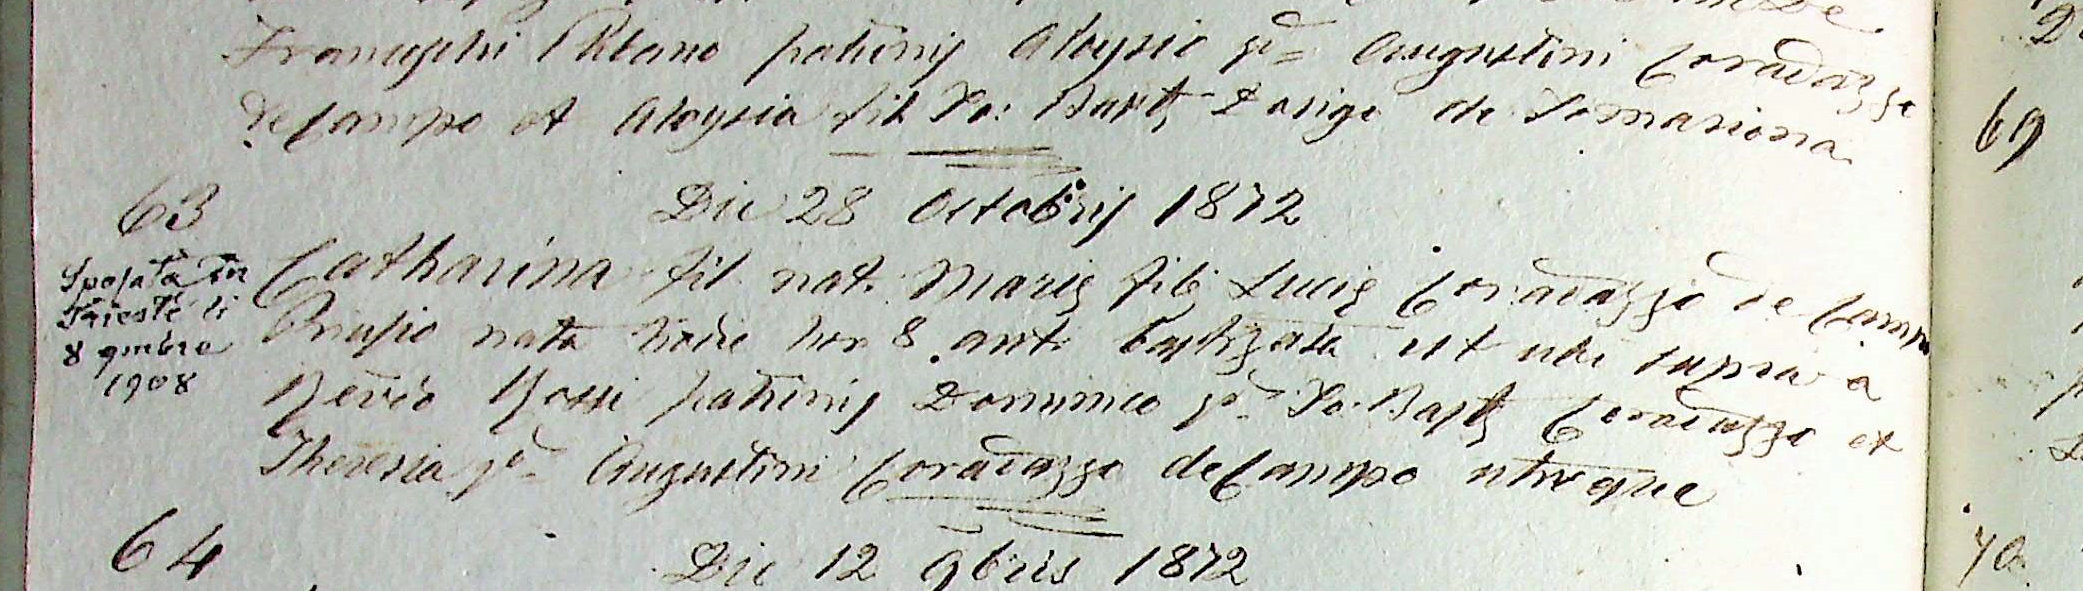 Francischi Plano patrinis Aloysio qm Augustini Coradazzo
de Campo et Aloysia fil Jo: Baptę Dorigo de
63
Die 28 Octobris 1872
Sposata in
Trieste li
8 9mbre
1908
Catharina fil nat. Marię fil Lucię Coradazzo de Campo
nata hodie hor 8. ant. baptizata est ubi supra a
Revdo Rossi patrinis Dominico qm Jo. Baptę Coradazzo et
Theresia qm Augustini Coradazzo de Campo utroque
64
Die 12 9bris 1872
69
70